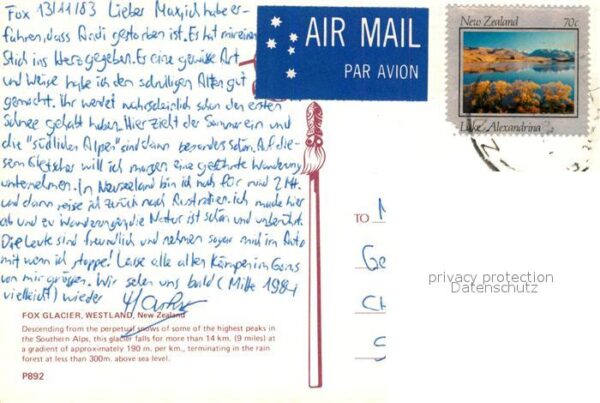 Fox 13/11/83 Lieber Max, ich habe er-
fahren, dass Andi gestorben ist. Es hat mir einen
Stich ins Herz gegeben. Es eine gewisse Art
und Weise habe ich den schrulligen Alten gut
gemocht. Ihr werdet wahrscheinlich schon den ersten
Schnee gehabt haben. Hier zieht der Sommer ein und
die "südlichen Alpen" sind dann besonders schön. Auf die-
sem Gletscher will ich morgen eine geführte Wanderung
unternehmen. In Neuseeland bin ich noch für rund 2 Mt.
und dann reise ich zurück nach Australien. Ich mache hier
ab und zu Wanderungen, die Natur ist schön und unberührt.
Die Leute sind freundlich und nehmen sogar mich im Auto
mit wenn ich stoppe! Lasse alle alten Kämpen im Gens
von mir grüssen. Wir sehen uns bald (Mitte 1984
vielleicht) wieder
FOX GLACIER, WESTLAND, New Zealand
Descending from the perpetual snows of some of the highest peaks in
the Southern Alps, this glacier falls for more than 14 km. (9 miles) at
a gradient of approximately 190 m. per km., terminating in the rain
forest at less than 300m. above sea level.
P892
AIR MAIL
PAR AVION
New Zealand 70c
Lake Alexandrina
TO
privacy protection
Datenschutz